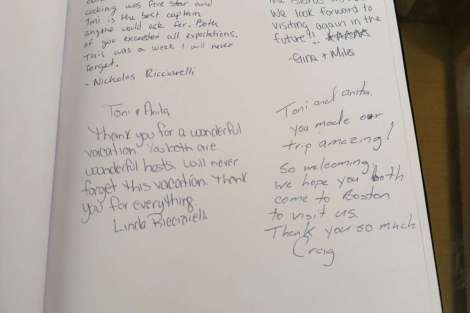 cooking was five star and
Toni is the best captain
anyone could ask for. Both
of you exceeded all expectations.
This was a week I will never
forget.
- Nicholas Ricciarelli
Toni & Anita
Thank you for a wonderful
vacation. You both are
wonderful hosts. Will never
forget this vacation. Thank
you for everything.
Linda Ricciarelli
We look forward to
visiting again in the
future!!
-Gina + Miles
Toni and anita,
you made our
trip amazing!
So welcoming,
we hope you both
come to Boston
to visit us.
Thank you so much
Craig